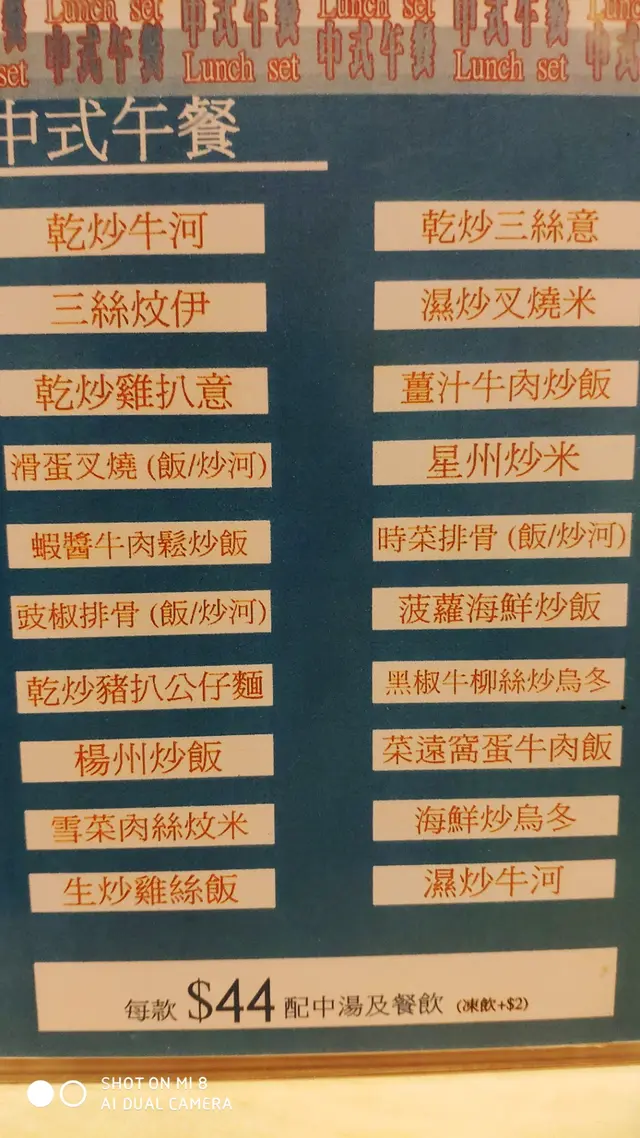 Lunch set 中式午餐 Lunch set 中式午餐
set 中式午餐 Lunch set 中式午餐 Lunch set
中式午餐
乾炒牛河
乾炒三絲意
三絲炆伊
濕炒叉燒米
乾炒雞扒意
薑汁牛肉炒飯
滑蛋叉燒 (飯/炒河)
星州炒米
蝦醬牛肉鬆炒飯
時菜排骨 (飯/炒河)
豉椒排骨 (飯/炒河)
菠蘿海鮮炒飯
乾炒豬扒公仔麵
黑椒牛柳絲炒烏冬
楊州炒飯
菜遠窩蛋牛肉飯
雪菜肉絲炆米
海鮮炒烏冬
生炒雞絲飯
濕炒牛河
每款 $44 配中湯及餐飲 (凍飲+$2)
SHOT ON MI 8
AI DUAL CAMERA